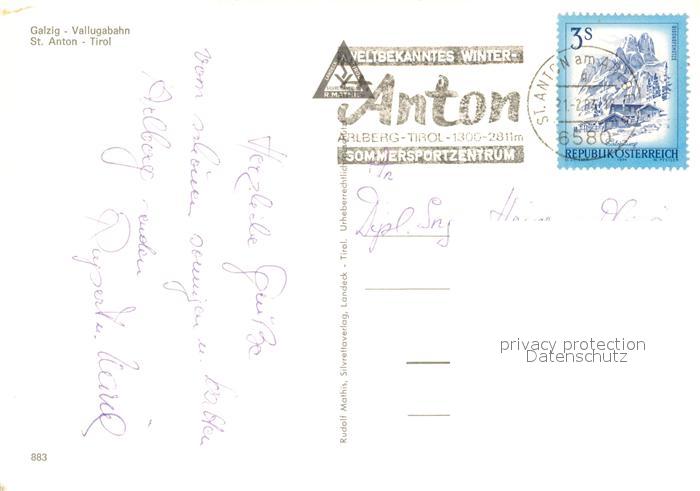 Galzig - Vallugabahn
St. Anton - Tirol
WELTBEKANNTES WINTER-
R. MATHIS
Anton
ARLBERG-TIROL-1300-2811m
SOMMERSPORTZENTRUM
ST. ANTON am
6580
3 S
REPUBLIK ÖSTERREICH
Dipl. Ing
Herzliche Grüße
vom schönen sonnigen u. kalten
Arlberg senden
Rudolf Mathis, Silvrettaverlag, Landeck - Tirol. Urheberrechtlich
privacy protection
Datenschutz
883